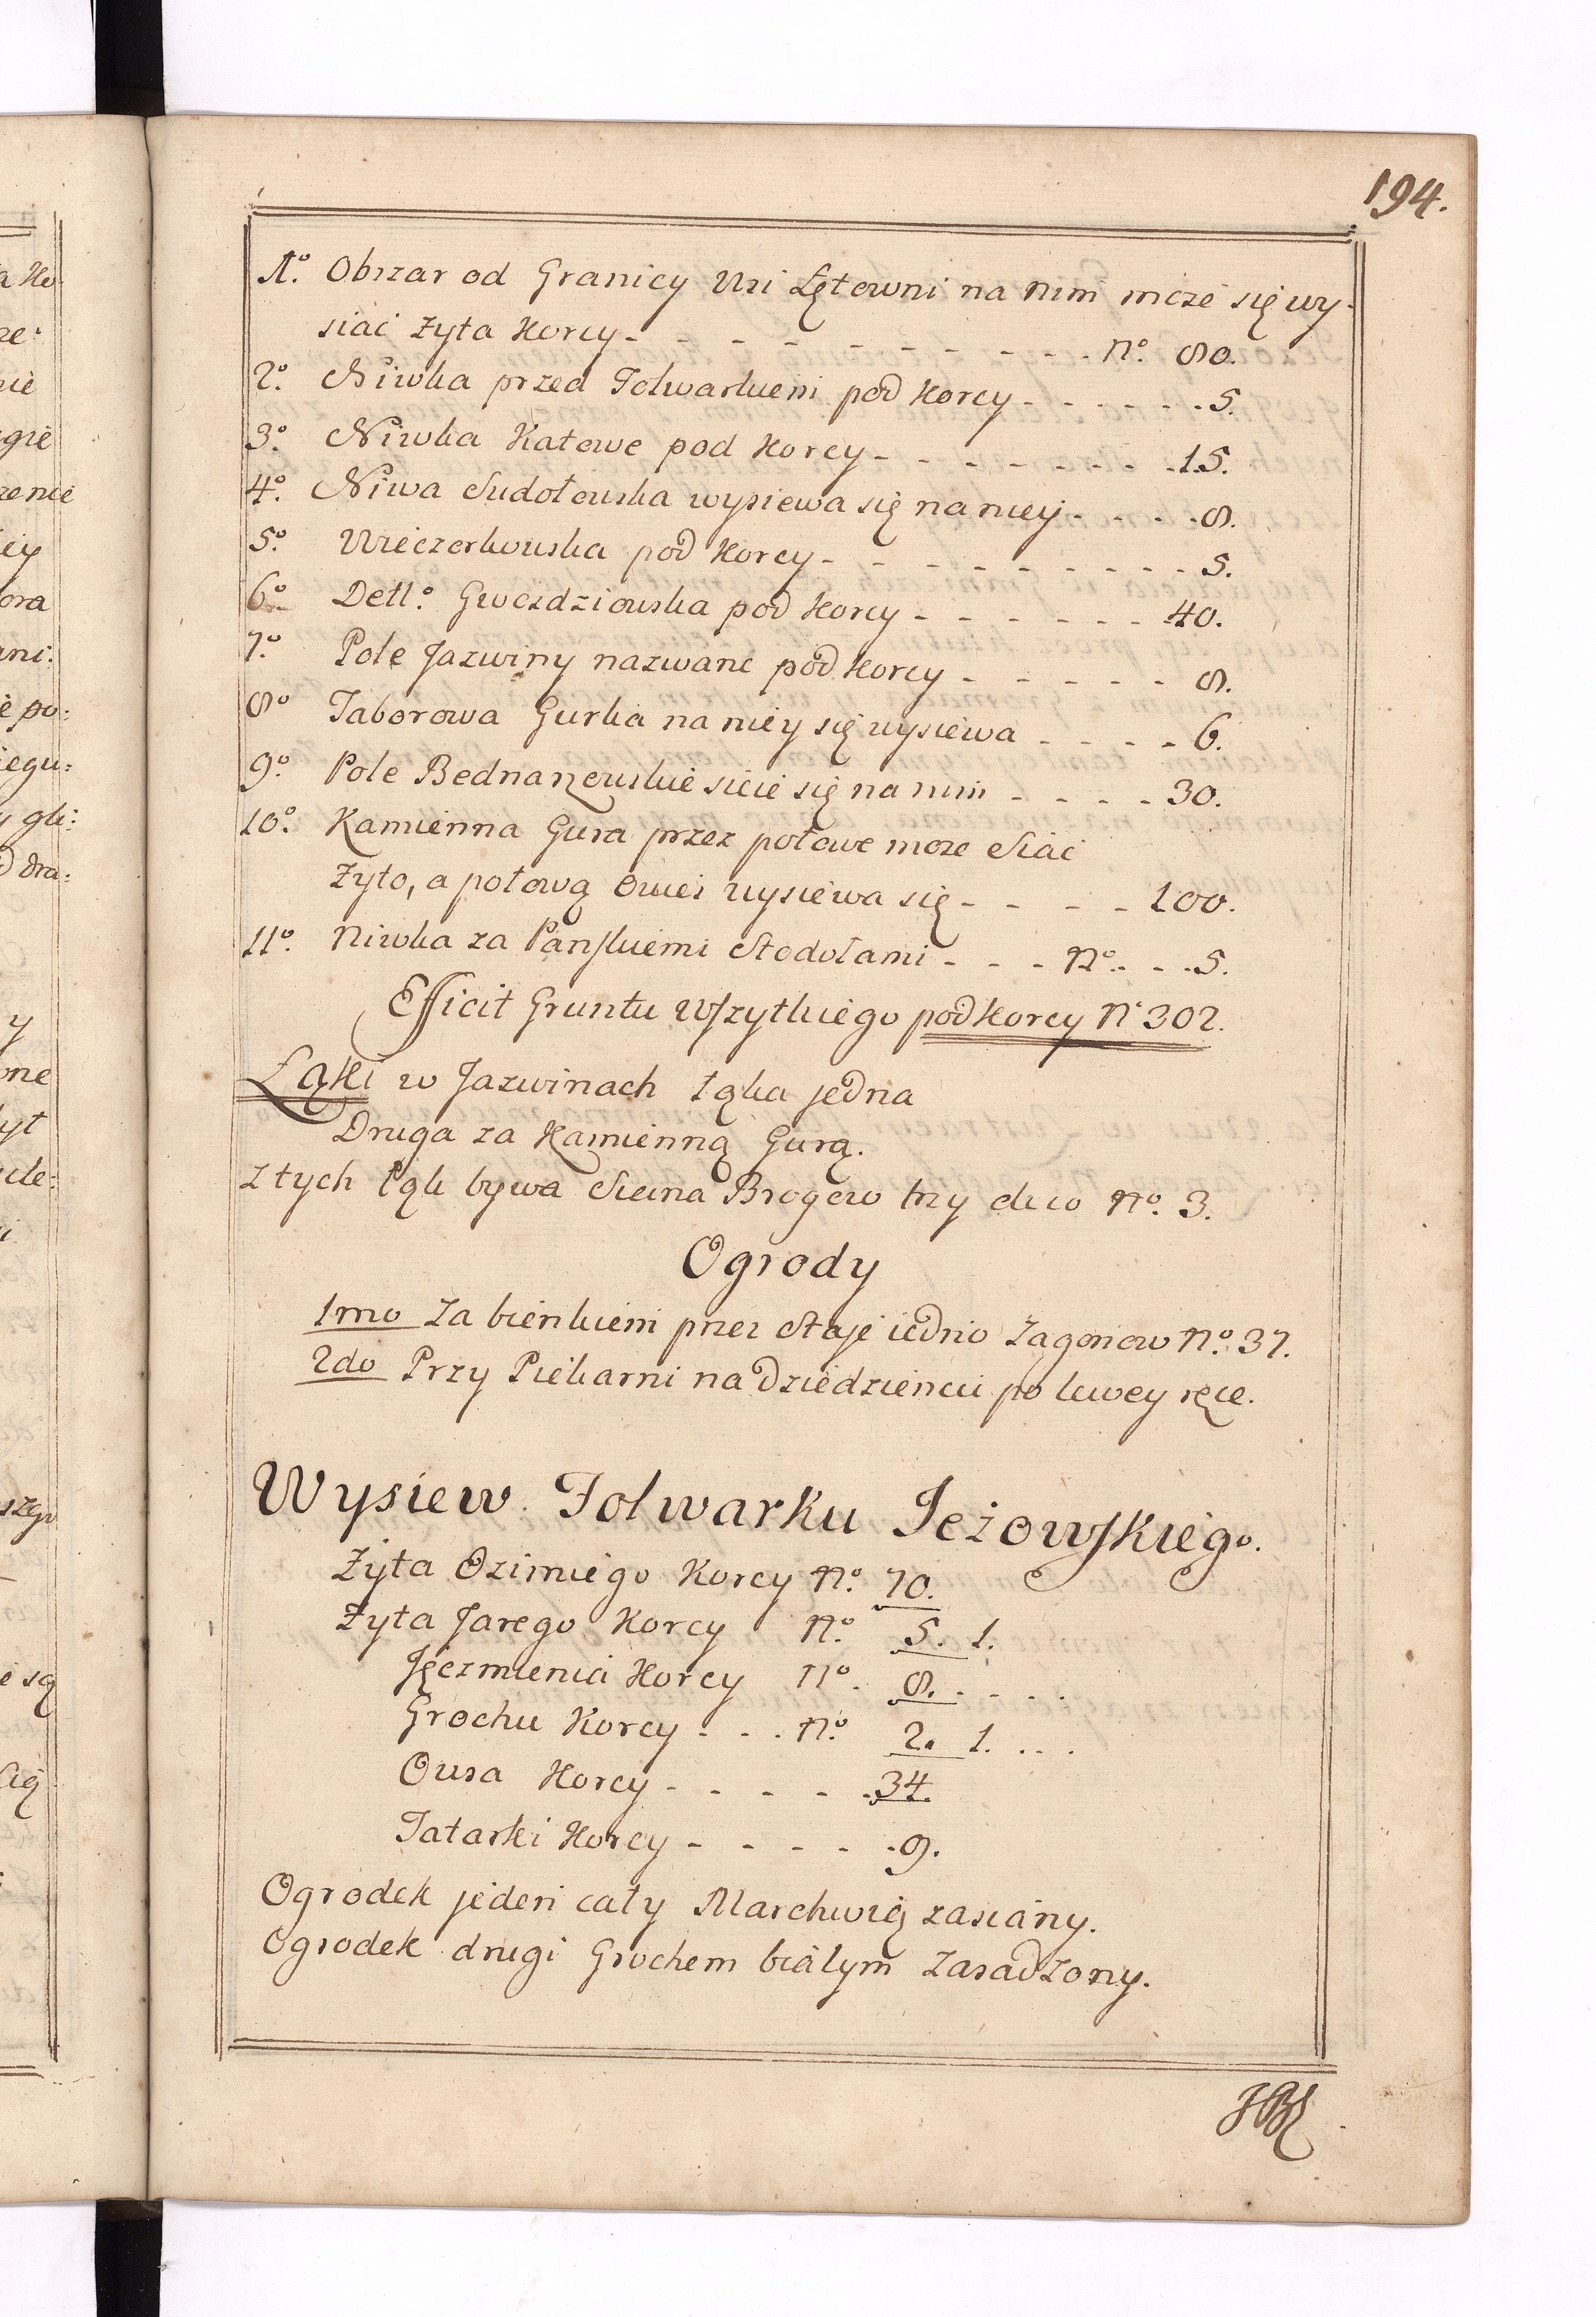 194.
1º. Obszar od Granicy Wsi Łętowni na nim może się wy-
siać Zyta Korcy - - - - - - - - - - Nº. 80.
2º. Niwka przed Folwarkiem pod Korcy - - - - - - 5.
3º. Niwka Katowe pod Korcy - - - - - - - - 15.
4º. Niwa Sudołowska wysiewa się na niey - - - - 8.
5º. Wieczorkowska pod Korcy - - - - - - - - - 5.
6º. Dettº. Gwozdziowska pod Korcy - - - - - - 40.
7º. Pole Jazwiny nazwane pod Korcy - - - - - 8.
8º Taborowa Gurka na niey się wysiewa - - - - 6.
9º. Pole Bednarzowskie sieie się na nim - - - - 30.
10º. Kamienna Gura przez połowe moze Siać
Zyto, a połową Owies wysiewa się - - - - 100.
11º. Niwka za Panskiemi Stodołami - - - Nº. - - 5.
Efficit Gruntu Wszytkiego pod Korcy Nº 302.
Łąki w Jazwinach łąka jedna
Druga za Kamienną Gurą.
Z tych łąk bywa Siana Brogow trzy Nº. 3.
Ogrody
1mo Za bienkiem przez Staje iedno Zagonow Nº. 37.
2do Przy Piekarni na Dziedzieńcu po lewey ręce.
Wysiew Folwarku Jeżowskiego.
Zyta Ozimiego Korcy Nº. 70.
Zyta Jarego Korcy Nº. 5. 1.
Jęczmienia Korcy Nº. 8. - - - .
Grochu Korcy - - - Nº. 2. 1. ...
Owsa Korcy - - - - - 34.
Tatarki Korcy - - - - - 9.
Ogrodek jeden cały Marchwią zasiany.
Ogrodek drugi Grochem białym Zasadzony.